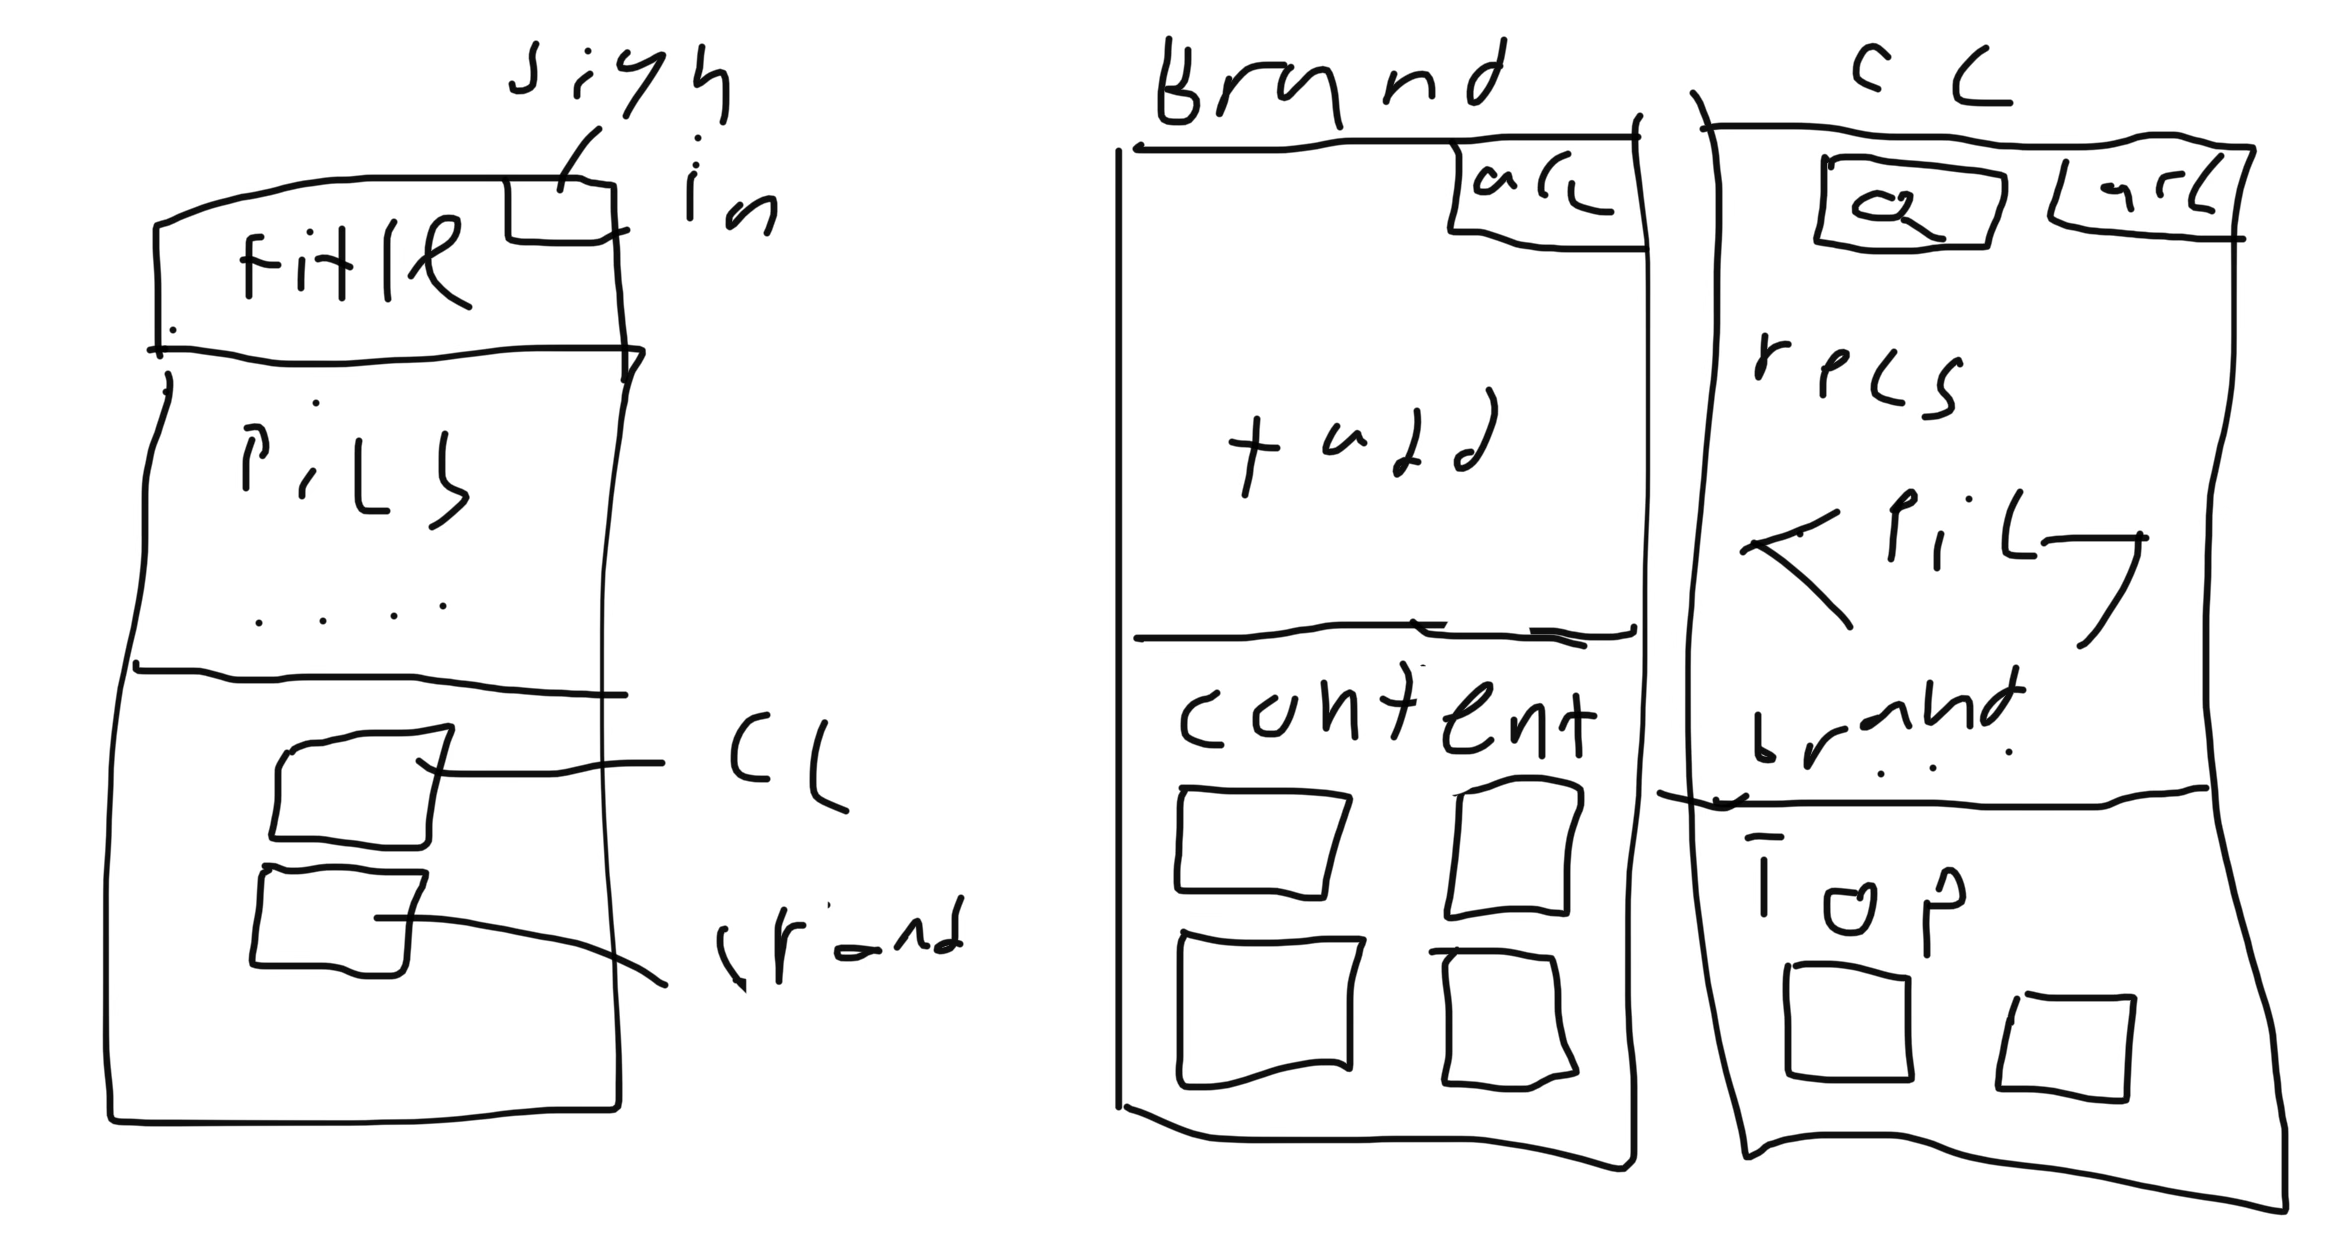 sign
in
title
PiCS
CC
brand
Brand
acc
+ add
content
CC
acc
recs
< PiC >
brand
Top